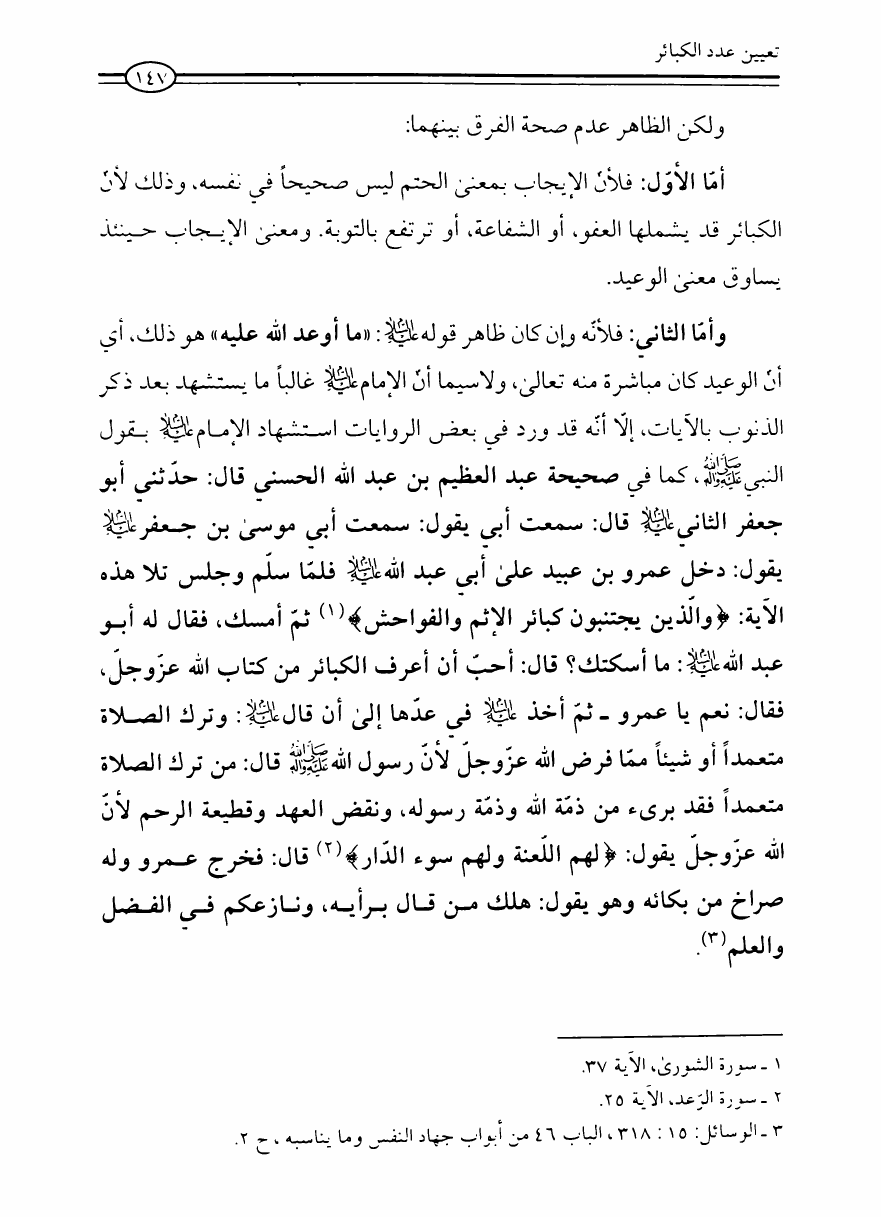 تعيين عدد الكبائر
١٤٧
ولكن الظاهر عدم صحة الفرق بينهما:
أمّا الأوّل: فلأنّ الإيجاب بمعنىٰ الحتم ليس صحيحاً في نفسه، وذلك لأنّ
الكبائر قد يشملها العفو، أو الشفاعة، أو ترتفع بالتوبة. ومعنىٰ الإيـجاب حـينئذ
يساوق معنىٰ الوعيد.
وأمّا الثاني: فلأنّه وإن كان ظاهر قوله عليه السلام: «ما أوعد الله عليه» هو ذلك، أي
أنّ الوعيد كان مباشرة منه تعالىٰ، ولاسيما أنّ الإمام عليه السلام غالباً ما يستشهد بعد ذكر
الذنوب بالآيات، إلّا أنّه قد ورد في بعض الروايات استشهاد الإمـام عليه السلام بـقول
النبي صلى الله عليه وآله، كما في صحيحة عبد العظيم بن عبد الله الحسني قال: حدّثني أبو
جعفر الثاني عليه السلام قال: سمعت أبي يقول: سمعت أبي موسىٰ بن جـعفر عليه السلام
يقول: دخل عمرو بن عبيد علىٰ أبي عبد الله عليه السلام فلمّا سلّم وجلس تلا هذه
الآية: ﴿والّذين يجتنبون كبائر الإثم والفواحش﴾(١) ثمّ أمسك، فقال له أبـو
عبد الله عليه السلام: ما أسكتك؟ قال: أحبّ أن أعرف الكبائر من كتاب الله عزّوجلّ،
فقال: نعم يا عمرو ـ ثمّ أخذ عليه السلام في عدّها إلىٰ أن قال عليه السلام: وترك الصـلاة
متعمداً أو شيئاً ممّا فرض الله عزّوجلّ لأنّ رسول الله صلى الله عليه وآله قال: من ترك الصلاة
متعمداً فقد برىء من ذمّة الله وذمّة رسوله، ونقض العهد وقطيعة الرحم لأنّ
الله عزّوجلّ يقول: ﴿لهم اللّعنة ولهم سوء الدّار﴾(٢) قال: فخرج عـمرو وله
صراخ من بكائه وهو يقول: هلك مـن قـال بـرأيـه، ونـازعكم فـي الفـضل
والعلم(٣).
١ ـ سورة الشورىٰ، الآية ٣٧.
٢ ـ سورة الرّعد، الآية ٢٥.
٣ ـ الوسائل: ١٥ : ٣١٨، الباب ٤٦ من أبواب جهاد النفس وما يناسبه، ح ٢.